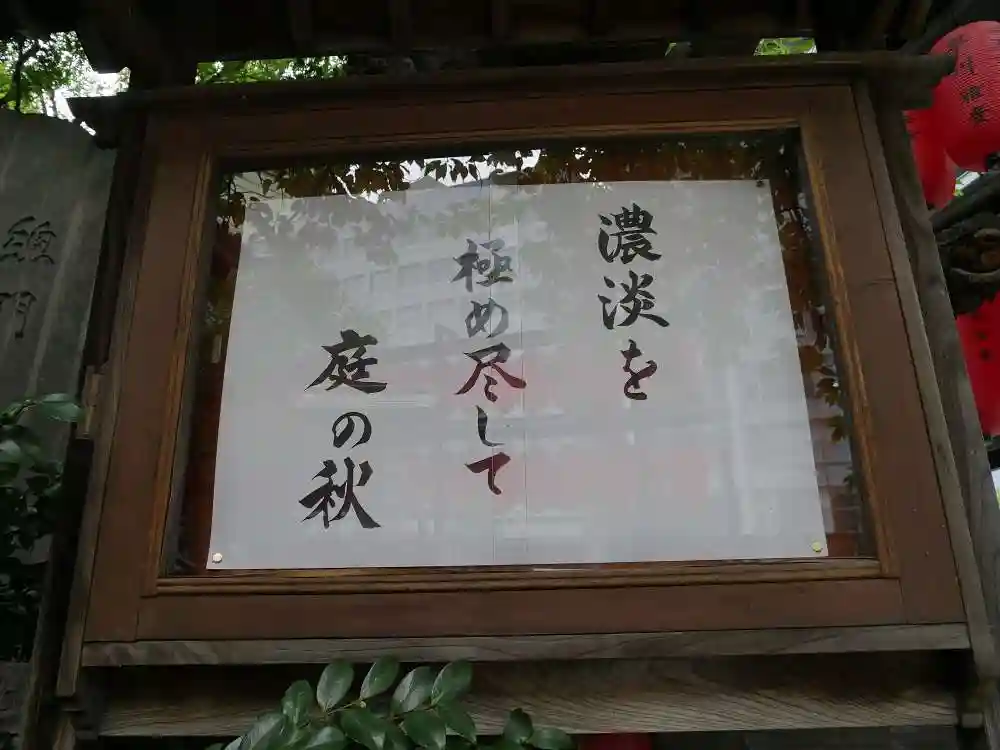 濃淡を
極め尽して
庭の秋
門